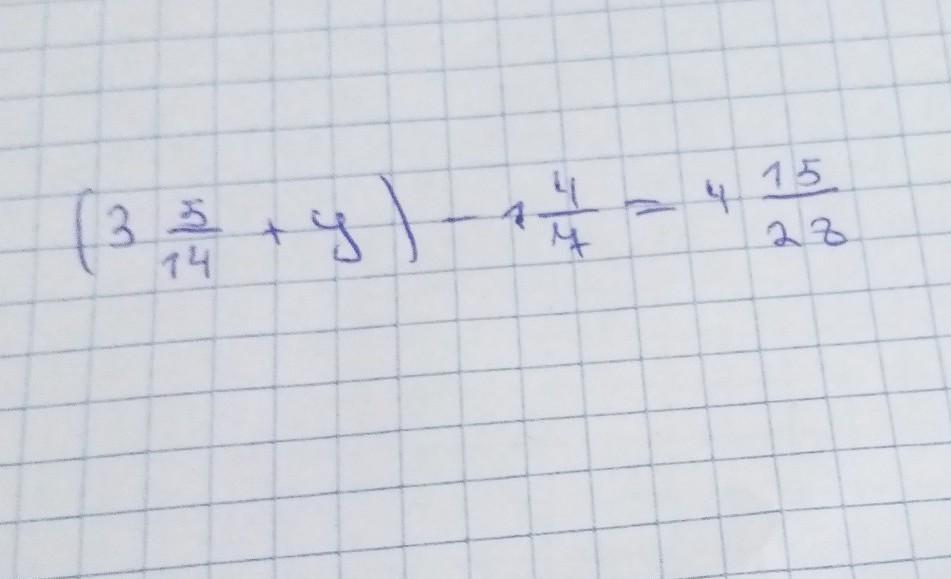 (3 5/14 + y) - 1 4/7 = 4 15/28